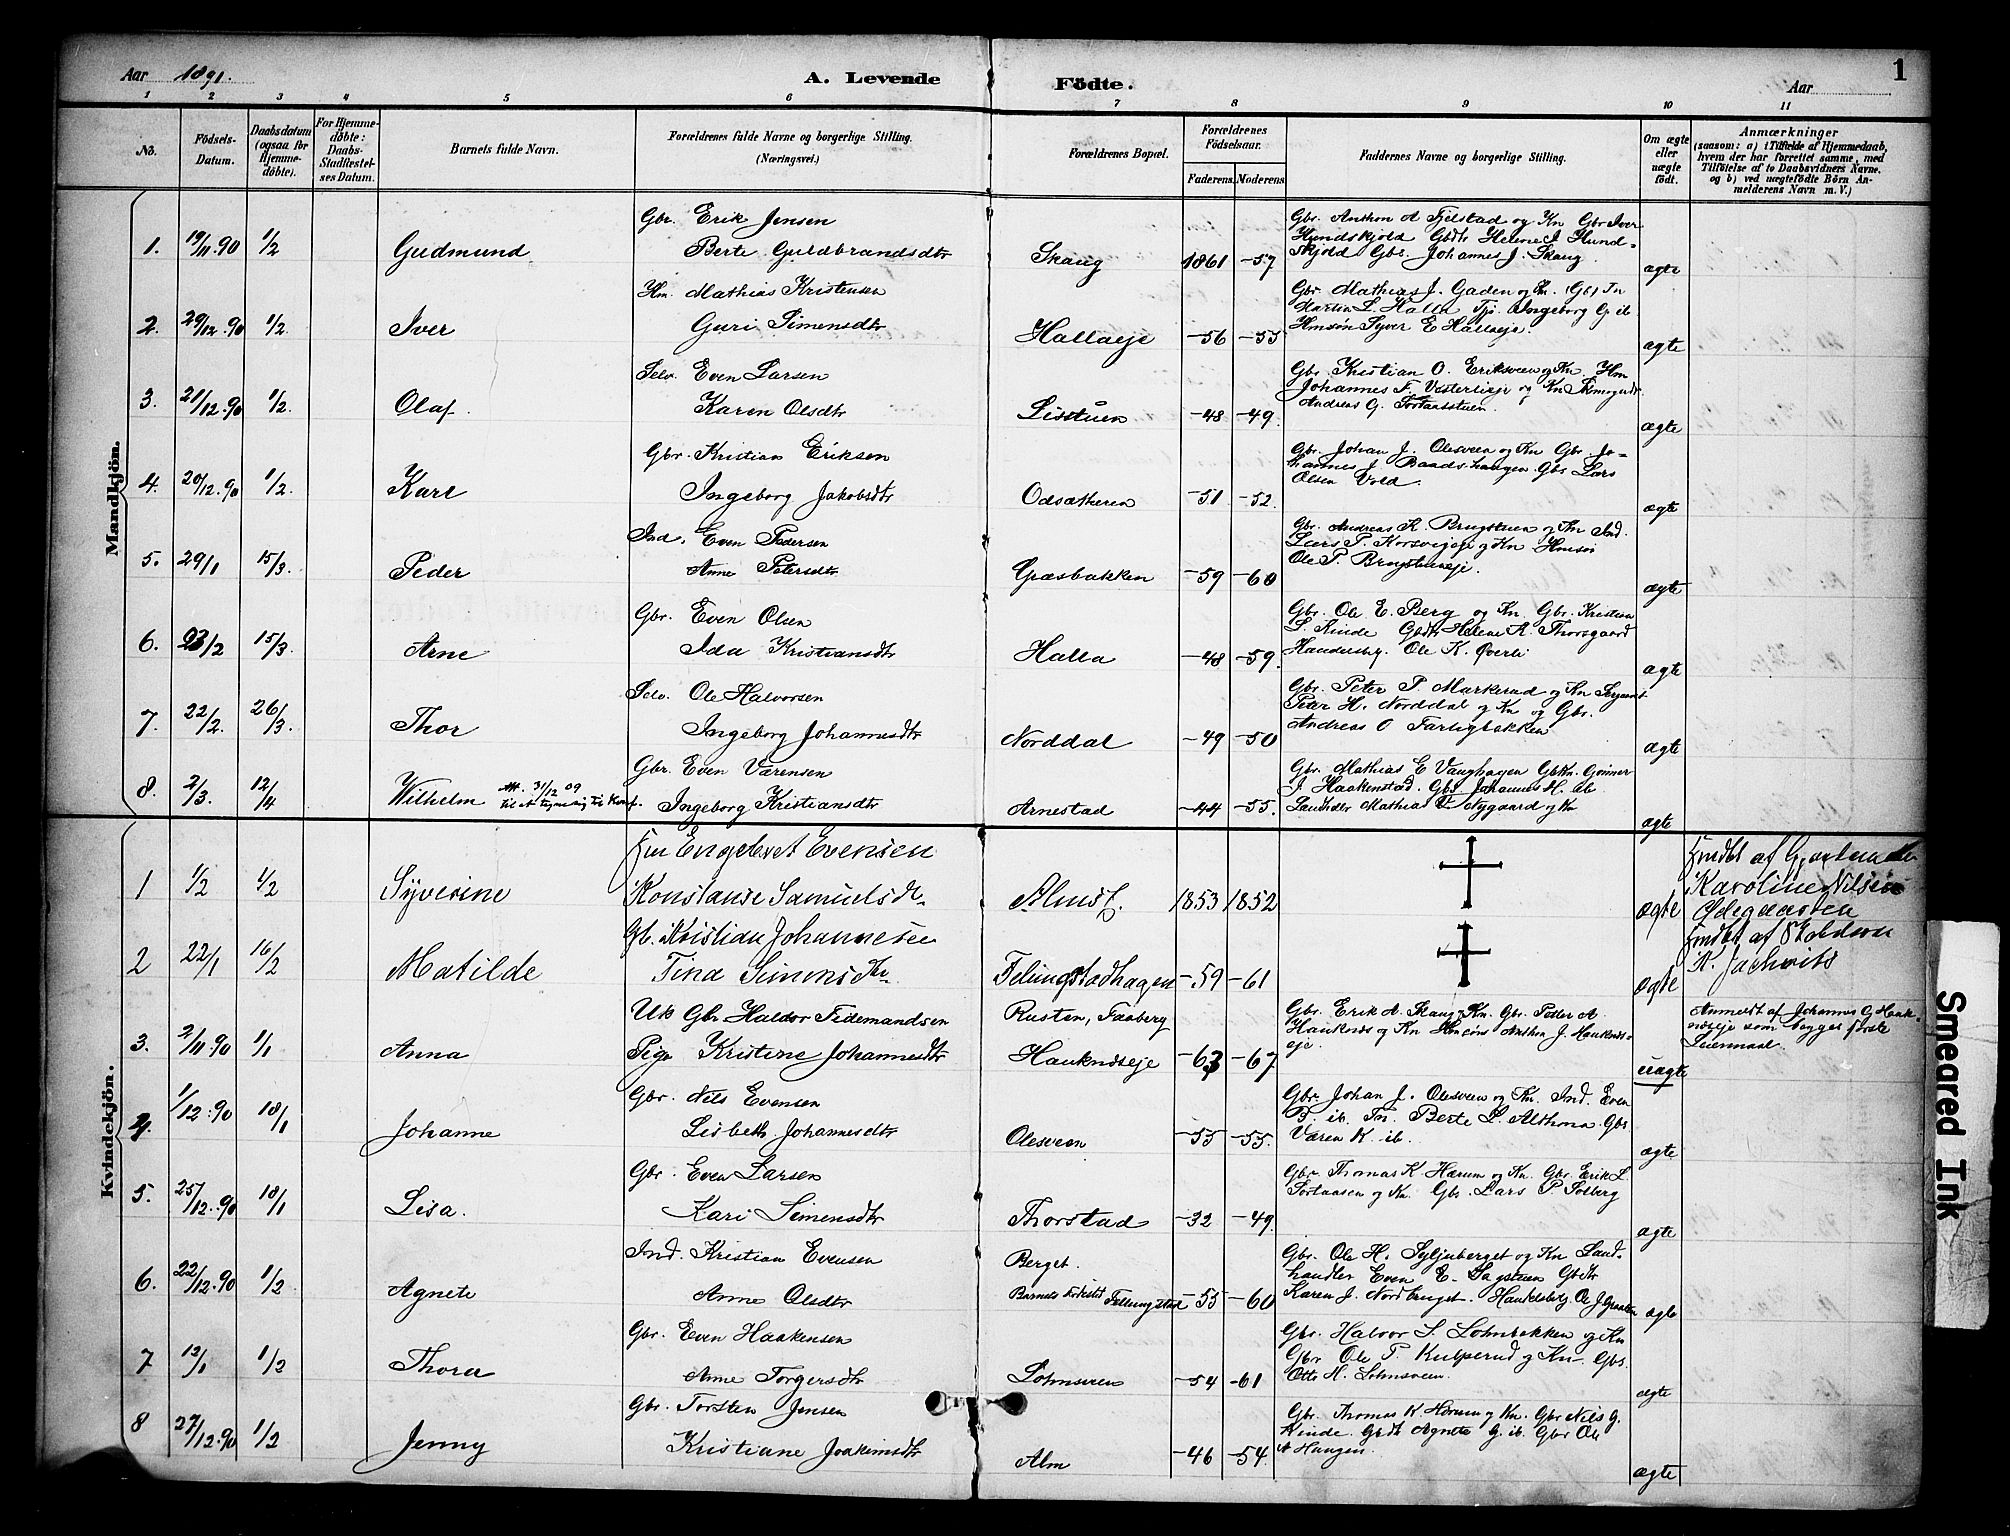 Aar 1891. A. Levende Födte. Aar 1
1 2 3 4 5 6 7 8 9 10 11
No. Födsels-Datum. Daabsdatum (ogsaa for Hjemmedöbte). For Hjemmedöbte: Daabs-Stadfæstelses Datum. Barnets fulde Navn. Forældrenes fulde Navne og borgerlige Stilling. (Næringsvei.) Forældrenes Bopæl. Forældrenes Födselsaar. Faderens. Moderens. Faddernes Navne og borgerlige Stilling. Om ægte eller uægte födt. Anmærkninger (saasom: a) i Tilfælde af Hjemmedaab, hvem der har forrettet samme, med Tilföielse af to Daabsvidners Navne. og b) ved uægtefödte Börn Anmelderens Navn m. V.)
Mandkjön.
Gbr. Erik Jensen
1. 19/11.90 1/2 Gudmund Berte Guldbrandsdtr Skaug 1861 -57 ægte
Gbr. Anthon A Fjelstad og Kn Gbr Iver
Hundskjold Gbdtr Helene J. Hund-
skjold Gbs. Johannes J. Skaug
Hm. Mathias Kristensen
2. 29/12.90 1/2 Iver Guri Simensdtr Hallaeje -56 -55 ægte
Gbr. Mathias J. Gaden og Kn. Gbs Tn
Martin L. Halla Tjs. Ingeborg G. ib
Hmsøn Syver E Hallaeje.
Selv. Even Larsen
3. 21/12.90 1/2. Olaf. Karen Olsdtr Lisstuen -48 -49 ægte
Gbr. Kristian O. Eriksveen og Kn. Hm
Johannes F. Vesterlieje og Kn
Andreas G.
Gbr. Kristian Eriksen
4. 20/12.90 1/2. Karl Ingeborg Jakobsdtr Odsætheren -51 -52. ægte
Gbr. Johan J. Olesveen og Kn Gbr. Jo-
hannes J Baadshaugen Gbs Lars
Olsen Vold.
Ind. Even Pedersen
5. 29/1 15/3. Peder Anne Petersdtr Græsbakken -59 -60 ægte
Gbr. Andreas K. Brugstuen og Kn Ind.
Lars P. Korsvejeje og Kn Hmsøn
Ole P. Brugstueeje.
Gbr. Even Olsen
6. 23/2 15/3. Arne Ida Kristiansdtr Halla -48 -59. ægte
Gbr. Ole E. Berg og Kn Gbr. Kristian
S. Kinde Gbdtr Helene A. Thorsgaard
Ole K. Øverli
Selv. Ole Halvorsen
7. 22/2. 26/3. Thor Ingeborg Johannesdtr Norddal -49 -50 ægte
Gbr. Peter P. Markerud og Kn Sergeant
Peter H. Norddal og Kn og Gbr.
Andreas O
Gbr. Even Værensen
8. 2/3. 12/4 Wilhelm Att. 31/12 09 Ingeborg Kristiansdtr Arnestad -44 -55. ægte
Gbr. Mathias E Vaughagen Gbkn. Gunner
J. Haakenstad. Gbs Johannes H. ib
Landhdlr Mathias Nygaard og Kn
Kvindekjön.
Engebret Evensen
1 1/2 1/2 Syverine Konstanse Samuelsdtr. 1853 1852 ægte
Hmdbt af
Karoline Nilsen
Ødegaarden
Gb. Kristian Johannesen
2 22/1 16/2 Matilde Tina Simensdtr. Felungstadhagen -59 -61 ægte
Hmdbt af
K.
Uk Gbr Haldor Tidemandsen Rusten, Faaberg
3. 2/11.90 1/1 Anna Pige Kristine Johannesdtr Haukndseje -63 -67 uægte
Gbr. Erik A. Skaug Kn. Gbr. Peder A
Haukends og Kn Hmsøn Anthon J. Haukends-
eje.
Anmeldt af Johannes G. Hauk-
endseje som begges første
Leiermaal.
Gbr. Nils Evensen
4. 1/12.90 18/1 Johanne Lisbeth Johannesdtr Olesveen -55 -55. ægte
Gbr. Johan J. Olesveen og Kn. Ind. Even
B. ib. Tn. Berte L. Althona. Gbs
Væren K. ib.
Gbr. Even Larsen
5. 25/12.90 18/1 Lisa. Kari Simensdtr Thorstad -32 -49. ægte
Gbr. Thomas K Hærum og Kn. Gbr. Erik L.
Sortaasen og Kn. Gbs. Lars P. Solberg
Ind. Kristian Evensen Berget.
6. 22/12.90 1/2 Agnete Anne Olsdtr Barnets Fødested Fellungstad -55 -60 ægte
Gbr. Ole H. Syljuberget og Kn Land-
handler Even E. Sagstuen Gbdtr
Karen J. Nordbruget.
Gbr. Even Haakensen
7 12/1 1/2 Thora Anne Torgersdtr Lohnsveen -54 -61 ægte
Gbr. Halvor S. Lohnbakken og Kn
Gbr Ole T. Kulperud og Kn- Gbs.
Otto H. Lohnsveen.
Gbr. Torsten Jensen
8 27/12.90 1/2 Jenny Kristiane Joakimsdtr Alm -46 -54. ægte
Gbr. Thomas K. Hærum og Kn. Gbr Nils G.
Kinde. Gbdt Agnete G. ib. Gbr Ole
A Haugen.
Smeared Ink